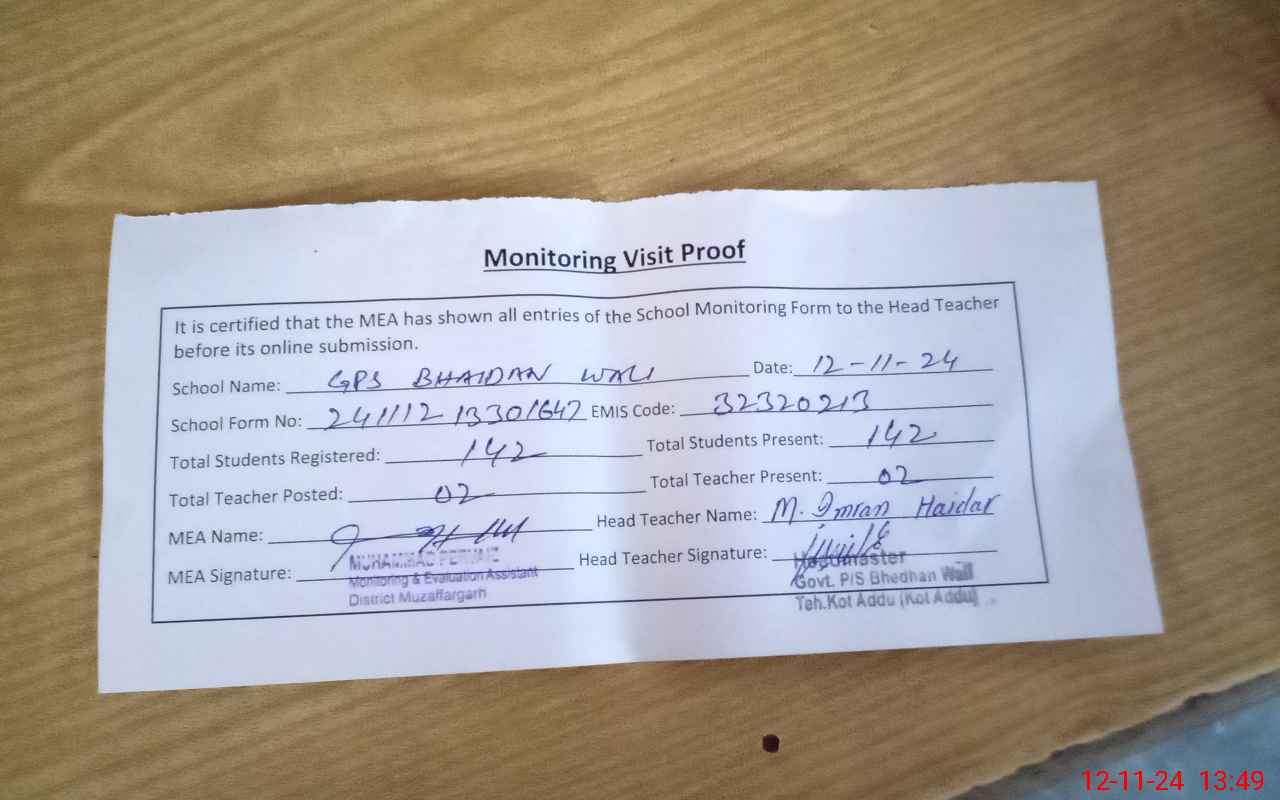 Monitoring Visit Proof
It is certified that the MEA has shown all entries of the School Monitoring Form to the Head Teacher
before its online submission.
School Name: GPS BHAIDAN WALI Date: 12-11-24
School Form No: 241112 13301647 EMIS Code: 32320213
Total Students Registered: 142 Total Students Present: 142
Total Teacher Posted: 02 Total Teacher Present: 02
MEA Name: Head Teacher Name: M. Imran Haidar
MEA Signature: Head Teacher Signature:
MUHAMMAD PERVAIZ
Monitoring & Evaluation Assistant
District Muzaffargarh
Headmaster
Govt. P/S Bhedhan Wali
Teh.Kot Addu (Kot Addu)
12-11-24 13:49